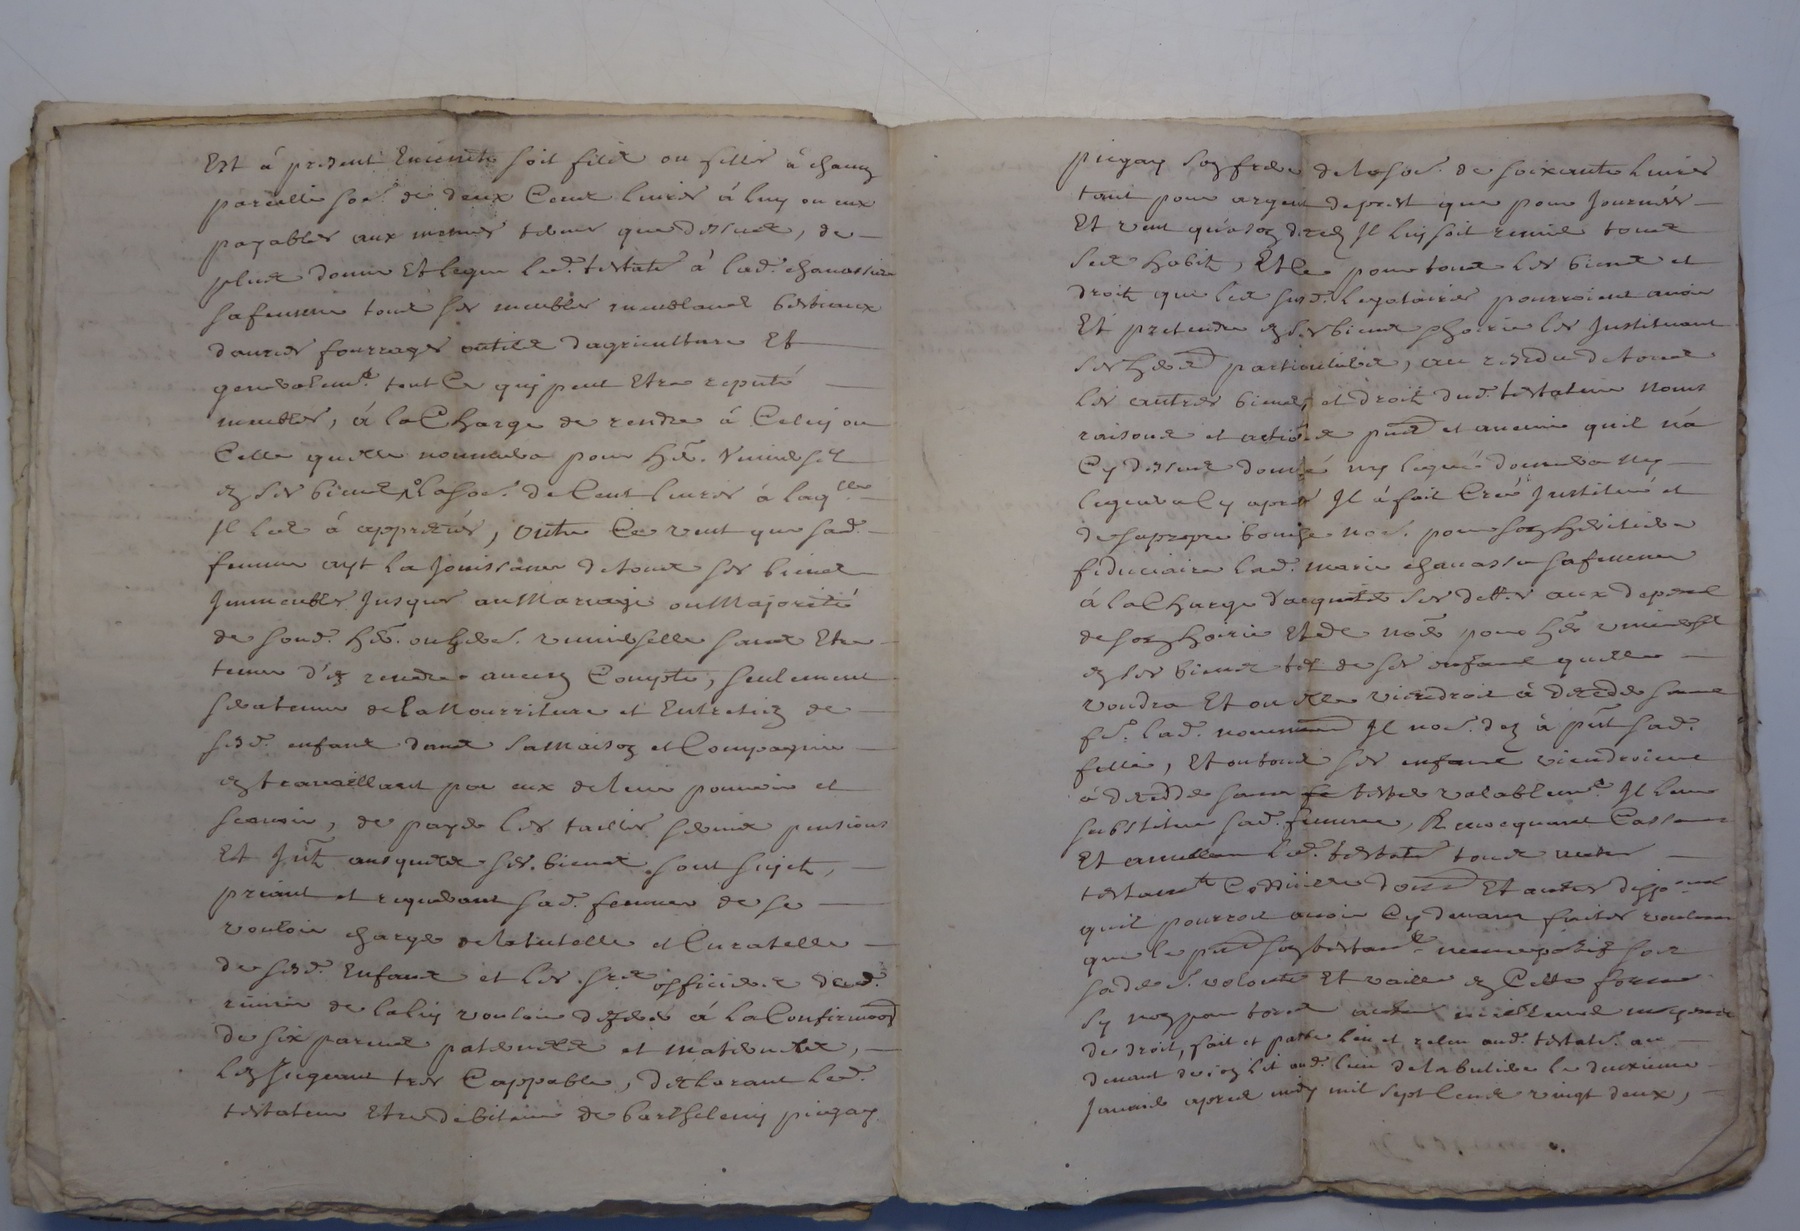 Est á present Enceinte soit filz ou filles á chacun
pareille so.e de deux Cent livres á luy ou eux
payables aux mesmes termes que dessus, de
plus donne Et legue led. testateur á lad. chavassieu
sa femme tous ses meubles meublans bestiaux
danrées fourrages outils dagriculture Et
generalem.t tout Ce quy peut Etre reputé
meubles, á la Charge de rendre á Celuy ou
Celle quelle nommera pour her. Universel
en ses biens la so.e de Cent livres á laq.lle
Il les á apprétiés, outre Ce veut que sad.
femme ayt la Jouissance de tous ses biens
Immeubles Jusques au Mariage ou Majorité
de sond. her. ou hered. universelle sans Etre
tenue d'en rendre aucun Compte, seulement
sera tenue de la Nourriture et Entretien de
sesd. enfans dans sa Maison et Compagnie
en travaillant par eux de leur pouvoir et
scavoir, de payer les tailles servis pensions
Et Intz ausquels ses biens sont sujets,
priant et requerant sad. femme de se
vouloir charger de la tutelle et Curatelle
de sesd. Enfans et les s.rs officiers dud.
de la luy vouloir deferer á la Confirmaon
de six parens paternels et maternels,
Len Jugeant tres Cappable, declarant led.
testateur Etre debiteur de barthelemy pingay
pingay son frere de la so.e de soixante livres
tant pour argent de prest que pour Journées
Et veut quá son deceds Il luy soit remis tous
ses habits, Et Ce pour tous les biens et
droits que les susd. legataires pourroient avoir
Et pretendre en ses biens et hoirie les Instituant
ses her.rs particuliers, au residu de tous
les autres biens et droits dud. testateur Noms
raisons et actions pnts et avenir quil ná
Cy dessus donné ny legué donnera Ny
leguera Cy apres Il á fait Créé Institué et
de sa propre bouche no.é pour son heritiere
fiduciaire lad. marie chavassieu sa femme
á la Charge d'acquitter ses dettes aux depens
de son hoirie Et de no.er pour her univerlsel
en ses biens tel de ses enfans quelle
voudra Et ou elle viendroit á deceder sans
fe. lad. nommaon Il no.e dez á pnt sad.
fille, Et ou tous ses enfans viendroient
á deceder sans tester valablem.t Il leur
substitue sad. femme, Revocquant Cassant
Et annullant led. testateur tous autres
testam.ts Codicilles donaons Et autres dispo.ons
quil pourroit avoir Cy devant faites voulant
que le pnt son testam.t nuncupatif soit
sa der.e volonté Et vaille en Cette forme
sy non par toute autre meilleure
de droit, fait et passé leu et releu aud. testateur au
devant de son lit aud. lieu de la butiere le deuxieme
Janvier apres midy mil sept Cens vingt deux,